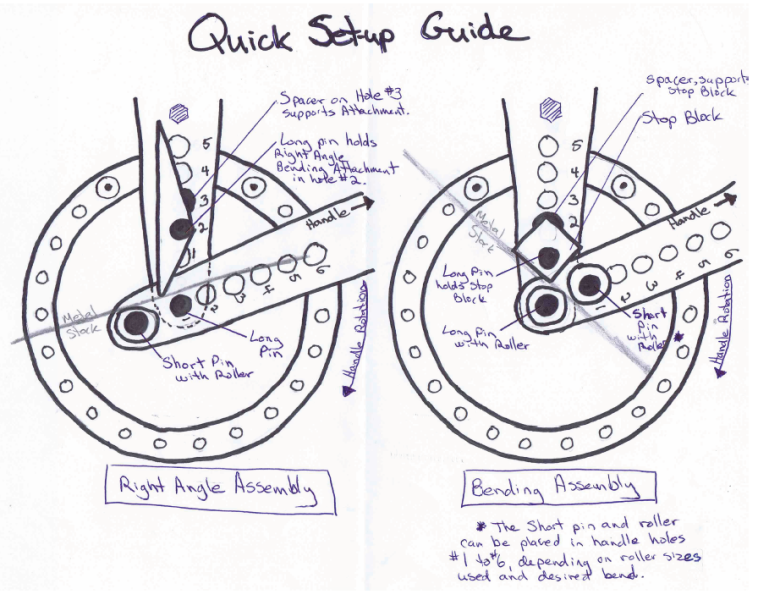 Quick Set-up Guide
Spacer on Hole #3
supports Attachment.
Long pin holds
Right Angle
Bending Attachment
in hole #2.
5
4
3
2
1
Handle
2
3
4
5
6
Metal
Stock
Long
Pin
Short Pin
with Roller
Handle Rotation
Right Angle Assembly
spacer, supports
Stop Block
Stop Block
5
4
3
2
Handle
Metal
Stock
1
2
3
4
5
6
Long Pin
holds Stop
Block
Long Pin
with Roller
Short
Pin
with
Roller *
Handle Rotation
Bending Assembly
* The Short pin and roller
can be placed in handle holes
#1 to #6, depending on roller sizes
used and desired bend.